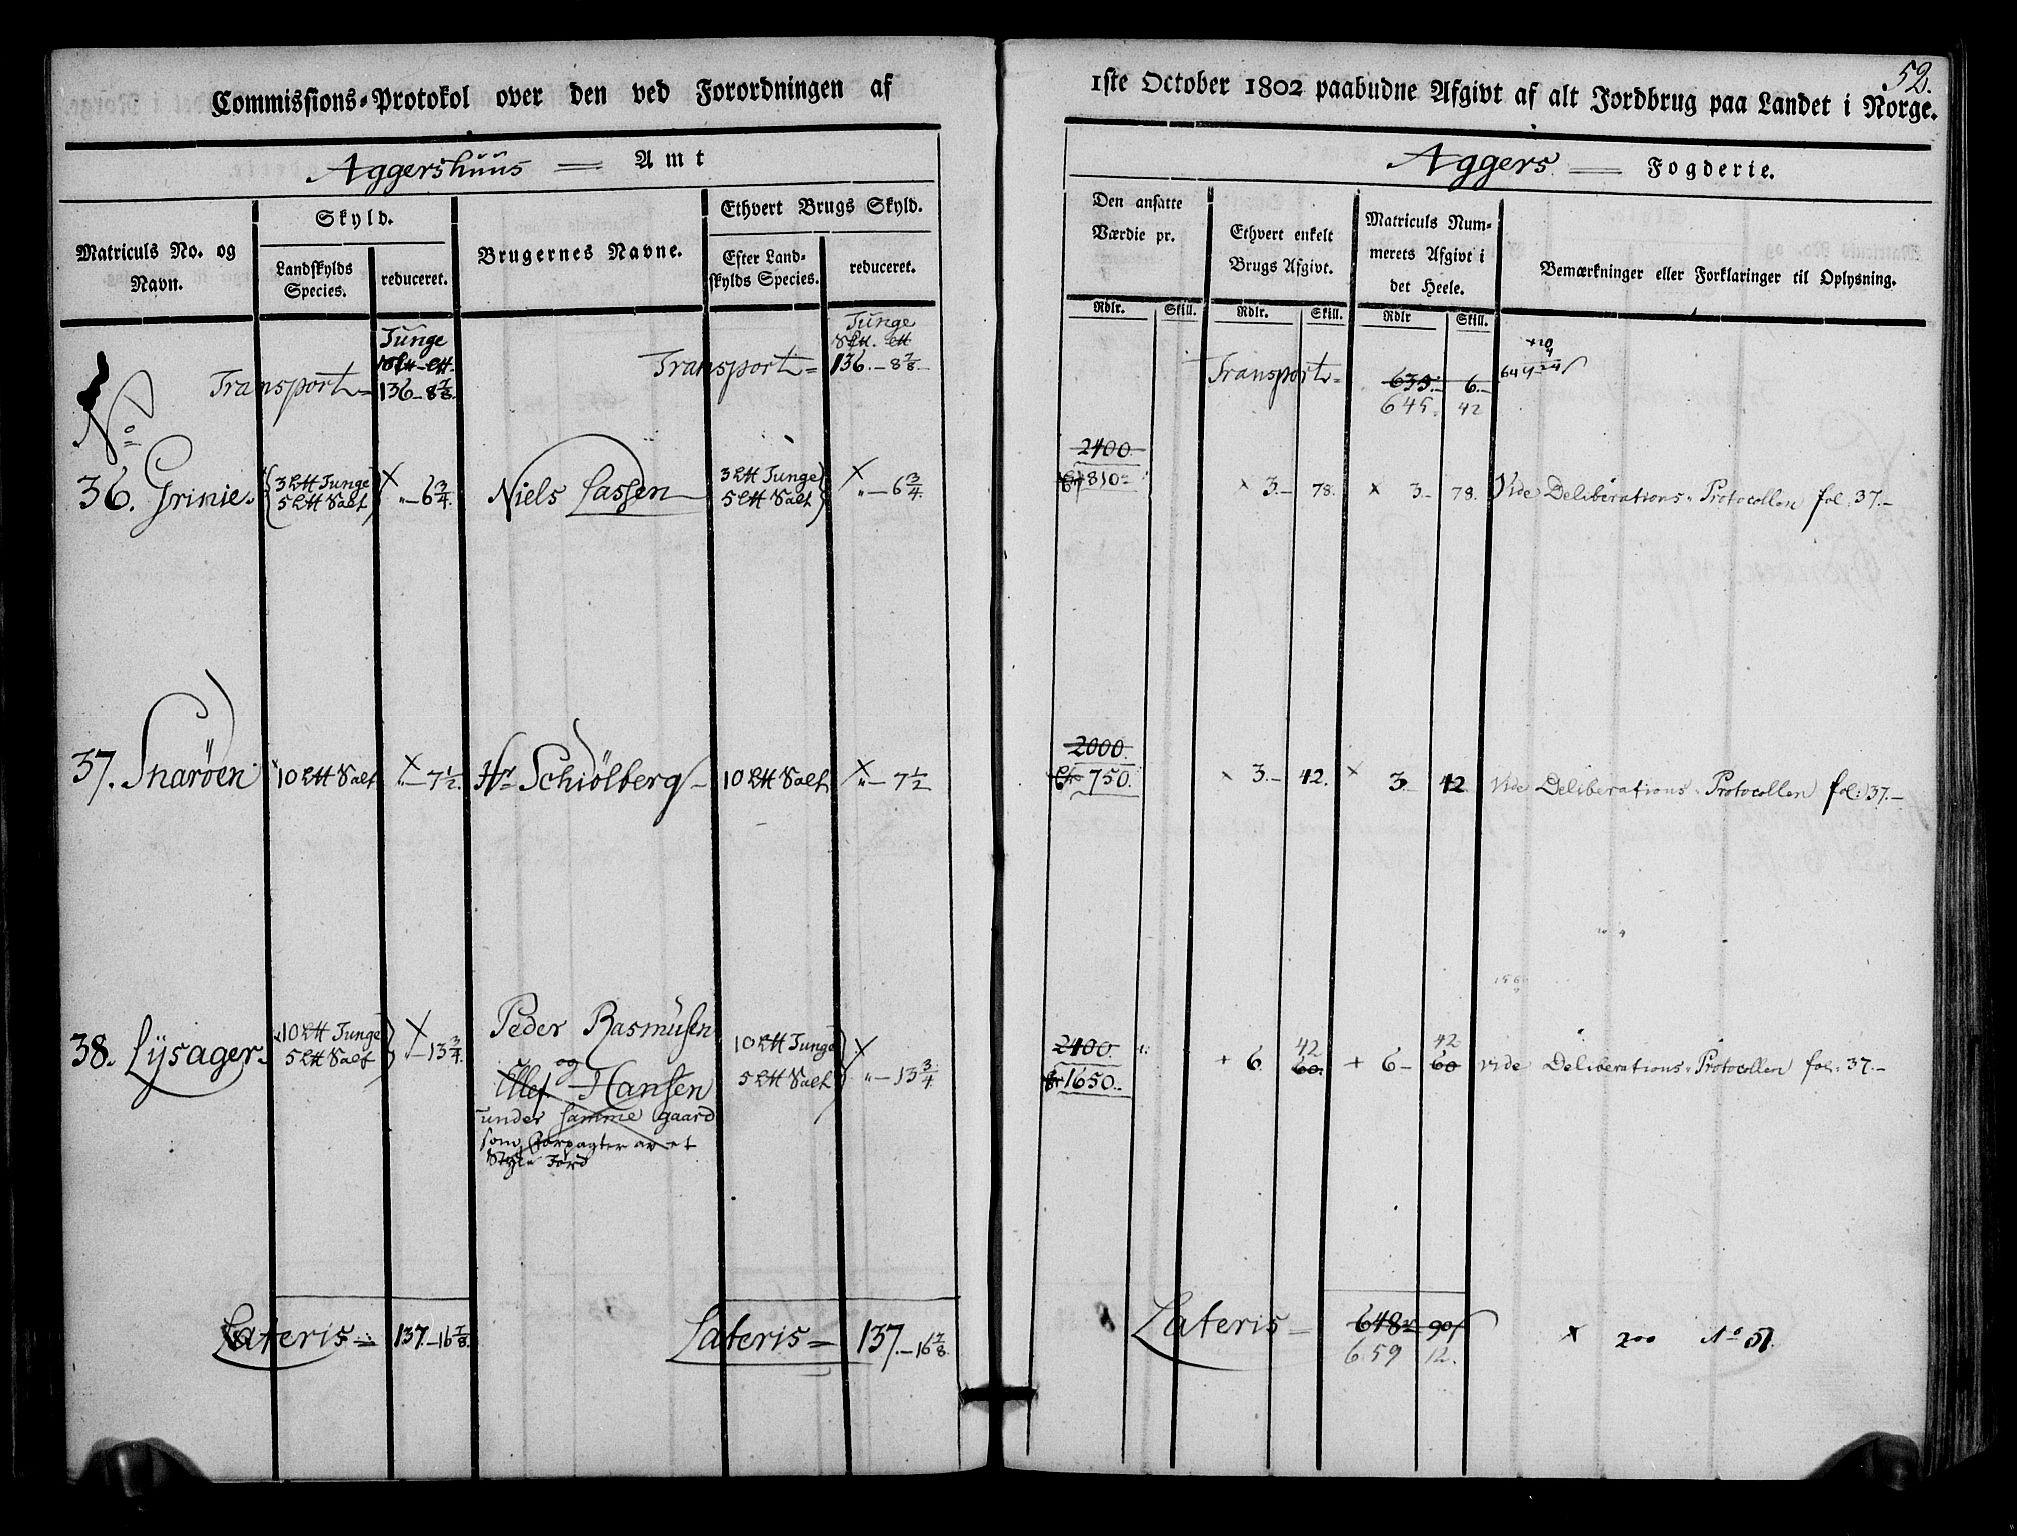 52.
Commissions-Protokol over den ved Forordningen af 1ste October 1802 paabudne Afgivt af alt Jordbrug paa Landet i Norge.
Aggershuus Amt
Aggers Fogderie.
Matriculs No. og Navn.
Skyld.
Landskylds Species.
reduceret.
Brugernes Navne.
Ethvert Brugs Skyld.
Efter Landskylds Species.
reduceret.
Den ansatte Værdie pr.
Rdlr. Skill.
Ethvert enkelt Brugs Afgivt.
Rdlr. Skill.
Matriculs Nummerets Afgivt i det Heele.
Rdlr Skill.
Bemærkninger eller Forklaringer til Oplysning.
Tunge
Transport = 136 - 8 7/8.
Tunge
Transport = 136. - 8 7/8 -
Transport = 635. - 6. -
645. 42
No
36. Grinie. 3 Ltt Tunge 5 Ltt Salt × „ - 6 3/4. Niels Lassen 3 Ltt Tunge 5 Ltt Salt × „ - 6 3/4 2400. 810 × 3. - 78. × 3 - 78. Vide Deliberations-Protocollen fol. 37. -
37. Snaröen 10 Ltt Salt × „ - 7 1/2. Hr Schiölberg - 10 Ltt Salt × „ - 7 1/2 2000. 750. × 3. - 42. × 3. 42 Vide Deliberations-Protocollen fol: 37. -
38. Lysager. 10 Ltt Tunge 5 Ltt Salt × „ - 13 3/4. Peder Rasmusen
og
Ellef Hansen
under samme gaard
som forpagter av et
Stÿke Jord
10 Ltt Tunge 5 Ltt Salt × „ - 13 3/4 2400. 1650. + 6 42 60. + 6 - 42 60 vide Deliberations-Protocollen fol: 37. -
Lateris = 137. - 16 7/8.
Lateris = 137. - 16 7/8.
Lateris = 648 90
659 12.
× 200 No 51.